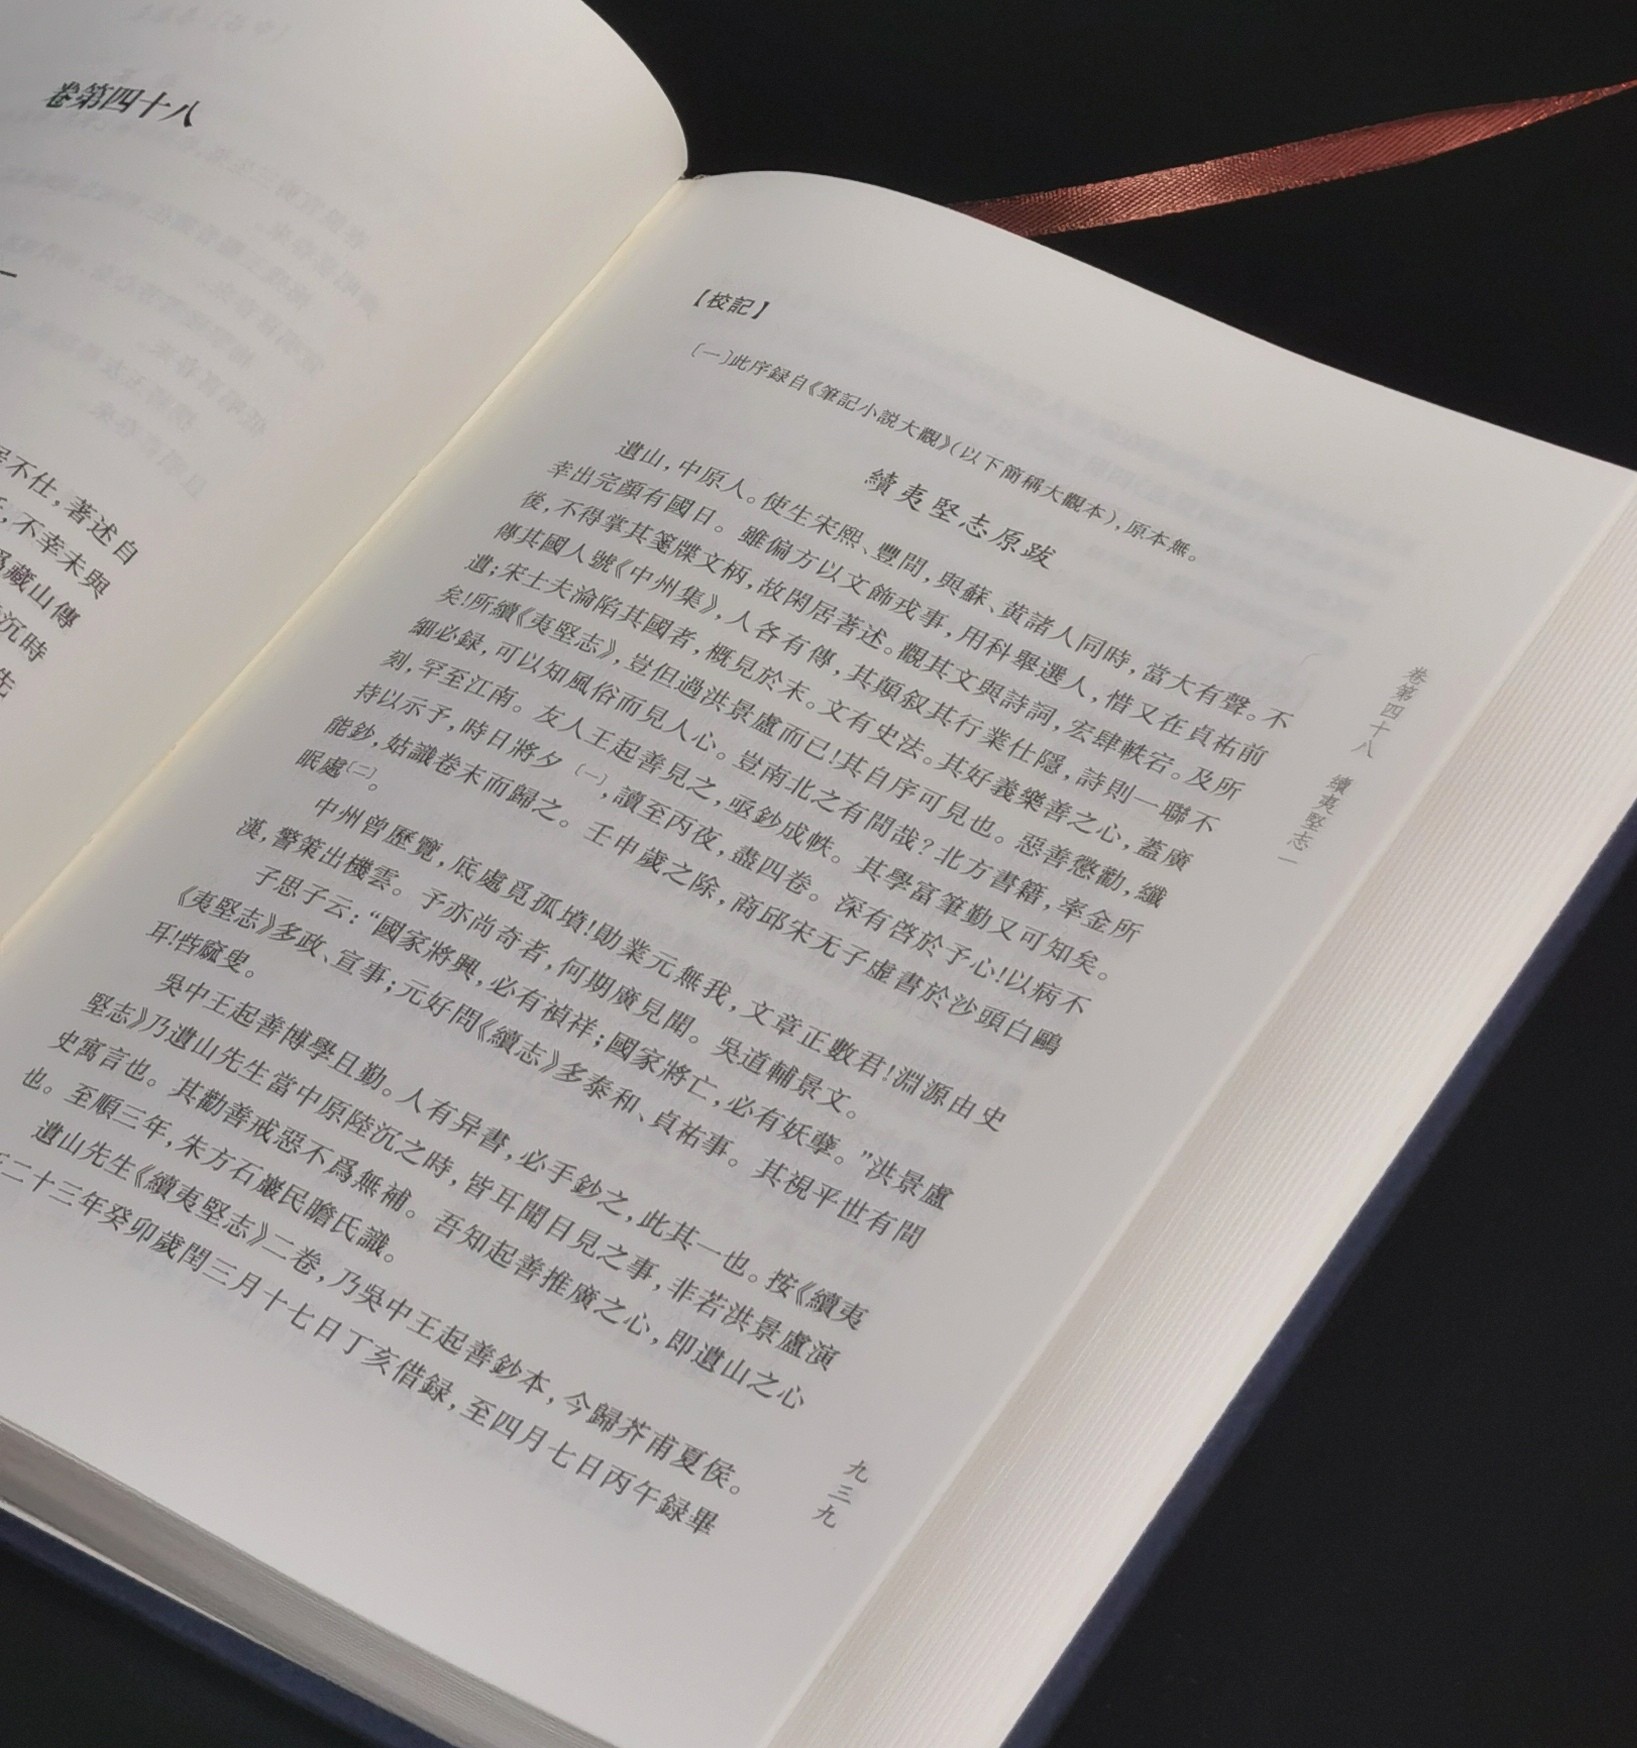 卷第四十八
居不仕，著述自
，不幸未與
爲藏山傳
沉時
先
【校記】
〔一〕此序録自《筆記小説大觀》（以下簡稱大觀本），原本無。
續夷堅志原跋
遺山，中原人。使生宋熙、豐間，與蘇、黄諸人同時，當大有聲。不
幸出完顔有國日。雖偏方以文飾戎事，用科舉選人，惜又在貞祐前
後，不得掌其箋牒文柄，故閑居著述。觀其文與詩詞，宏肆軼宕。及所
傳其國人號《中州集》，人各有傳，其顛叙其行業仕隱，詩則一聯不
遺；宋士夫淪陷其國者，概見於末。文有史法。其好義樂善之心，蓋廣
矣！所續《夷堅志》，豈但過洪景盧而已！其自序可見也。惡善懲勸，纖
細必録，可以知風俗而見人心。豈南北之有間哉？北方書籍，率金所
刻，罕至江南。友人王起善見之，亟鈔成帙。其學富筆勤又可知矣。
持以示予，時日將夕〔一〕，讀至丙夜，盡四卷。深有啓於予心！以病不
能鈔，姑識卷末而歸之。壬申歲之除，商邱宋无子虚書於沙頭白鷗
眠處〔二〕。
中州曾歷覽，底處覓孤墳！勛業元無我，文章正數君！淵源由史
漢，警策出機雲。予亦尚奇者，何期廣見聞。吳道輔景文。
子思子云：“國家將興，必有禎祥；國家將亡，必有妖孽。”洪景盧
《夷堅志》多政、宣事；元好問《續志》多泰和、貞祐事。其視平世有間
耳！呰窳叟。
吳中王起善博學且勤。人有异書，必手鈔之，此其一也。按《續夷
堅志》乃遺山先生當中原陸沉之時，皆耳聞目見之事，非若洪景盧演
史寓言也。其勸善戒惡不爲無補。吾知起善推廣之心，即遺山之心
也。至順三年，朱方石巖民瞻氏識。
遺山先生《續夷堅志》二卷，乃吳中王起善鈔本，今歸芥甫夏侯。
二十三年癸卯歲閏三月十七日丁亥借録，至四月七日丙午録畢
卷第四十八 續夷堅志一
九三九